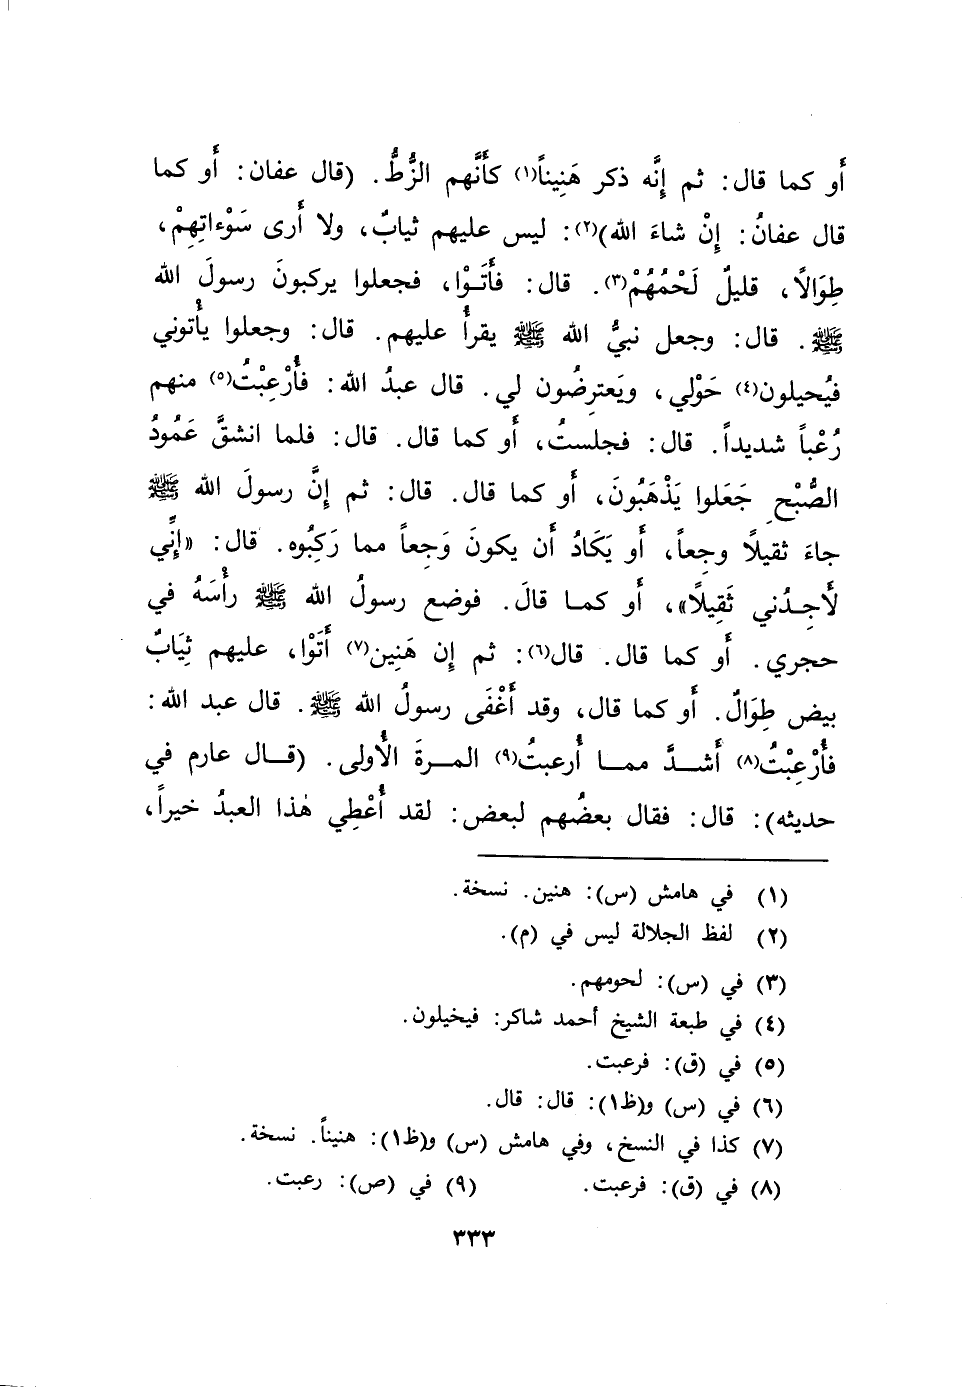 أَو كما قال: ثم إِنَّه ذكر هَنِيناً(١) كأَنَّهم الزُّطُّ. (قال عفان: أَو كما
قال عفانُ: إِنْ شاءَ الله)(٢): ليس عليهم ثيابٌ، ولا أَرى سَوْءاتِهِمْ،
طِوَالًا، قليلٌ لَحْمُهُمْ(٣). قال: فأَتَوْا، فجعلوا يركبونَ رسولَ الله
ﷺ. قال: وجعل نبيُّ الله ﷺ يقرأُ عليهم. قال: وجعلوا يأْتوني
فيُحيلون(٤) حَوْلي، ويَعترِضُون لي. قال عبدُ الله: فأُرْعِبْتُ(٥) منهم
رُعْباً شديداً. قال: فجلستُ، أَو كما قال. قال: فلما انشقَّ عَمُودُ
الصُّبْحِ جَعَلوا يَذْهَبُونَ، أَو كما قال. قال: ثم إِنَّ رسولَ الله ﷺ
جاءَ ثقيلًا وجِعاً، أَو يَكَادُ أَن يكونَ وَجِعاً مما رَكِبُوه. قال: «إِنِّي
لَأَجِدُني ثَقِيلًا»، أَو كما قالَ. فوضع رسولُ الله ﷺ رأْسَهُ في
حجري. أَو كما قال. قال(٦): ثم إِن هَنِين(٧) أَتَوْا، عليهم ثِيَابٌ
بيض طِوَالٌ. أَو كما قال، وقد أَغْفَى رسولُ الله ﷺ. قال عبد الله:
فأُرْعِبْتُ(٨) أَشدَّ مما أُرعبتُ(٩) المرةَ الأُولى. (قال عارم في
حديثه): قال: فقال بعضُهم لبعض: لقد أُعْطِي هٰذا العبدُ خيراً،
(١) في هامش (س): هنين. نسخة.
(٢) لفظ الجلالة ليس في (م).
(٣) في (س): لحومهم.
(٤) في طبعة الشيخ أحمد شاكر: فيخيلون.
(٥) في (ق): فرعبت.
(٦) في (س) و(ظ١): قال: قال.
(٧) كذا في النسخ، وفي هامش (س) و(ظ١): هنيناً. نسخة.
(٨) في (ق): فرعبت. (٩) في (ص): رعبت.
٣٣٣